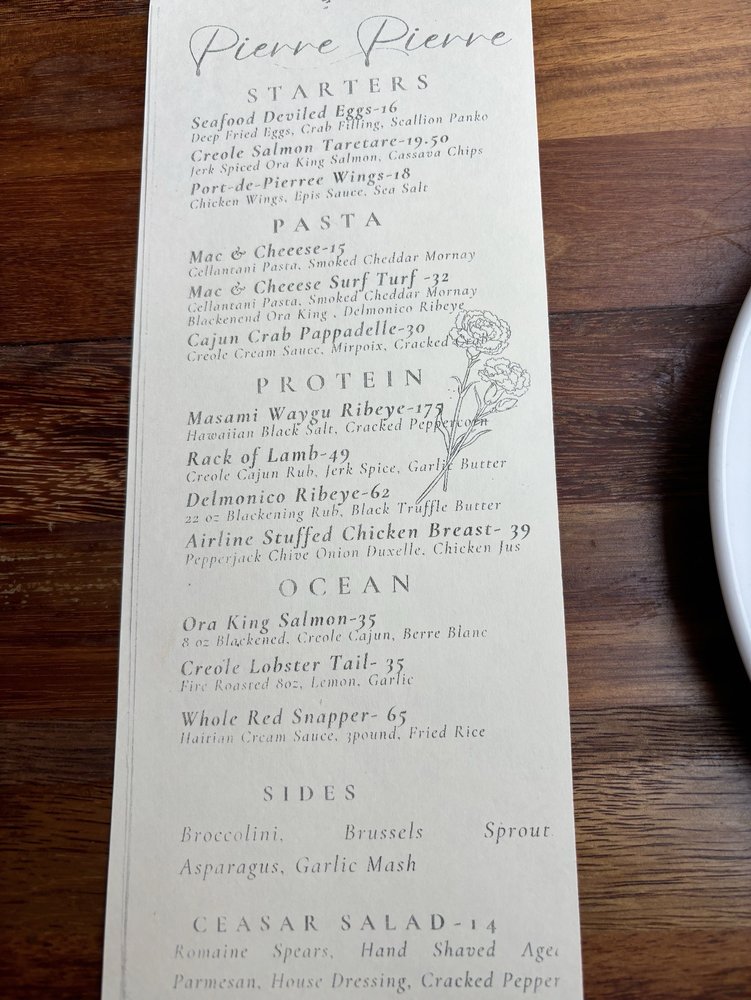 Pierre Pierre
STARTERS
Seafood Deviled Eggs-16
Deep Fried Eggs, Crab Filling, Scallion Panko
Creole Salmon Taretare-19.50
Jerk Spiced Ora King Salmon, Cassava Chips
Port-de-Pierree Wings-18
Chicken Wings, Epis Sauce, Sea Salt
PASTA
Mac & Cheeese-15
Cellantani Pasta, Smoked Cheddar Mornay
Mac & Cheeese Surf Turf -32
Cellantani Pasta, Smoked Cheddar Mornay
Blackenend Ora King , Delmonico Ribeye
Cajun Crab Pappadelle-30
Creole Cream Sauce, Mirpoix, Cracked
PROTEIN
Masami Waygu Ribeye-175
Hawaiian Black Salt, Cracked Peppercorn
Rack of Lamb-49
Creole Cajun Rub, Jerk Spice, Garlic Butter
Delmonico Ribeye-62
22 oz Blackening Rub, Black Truffle Butter
Airline Stuffed Chicken Breast- 39
Pepperjack Chive Onion Duxelle, Chicken Jus
OCEAN
Ora King Salmon-35
8 oz Blackened, Creole Cajun, Berre Blanc
Creole Lobster Tail- 35
Fire Roasted 8oz, Lemon, Garlic
Whole Red Snapper- 65
Haitian Cream Sauce, 3pound, Fried Rice
SIDES
Broccolini, Brussels Sprout,
Asparagus, Garlic Mash
CEASAR SALAD-14
Romaine Spears, Hand Shaved Aged
Parmesan, House Dressing, Cracked Pepper